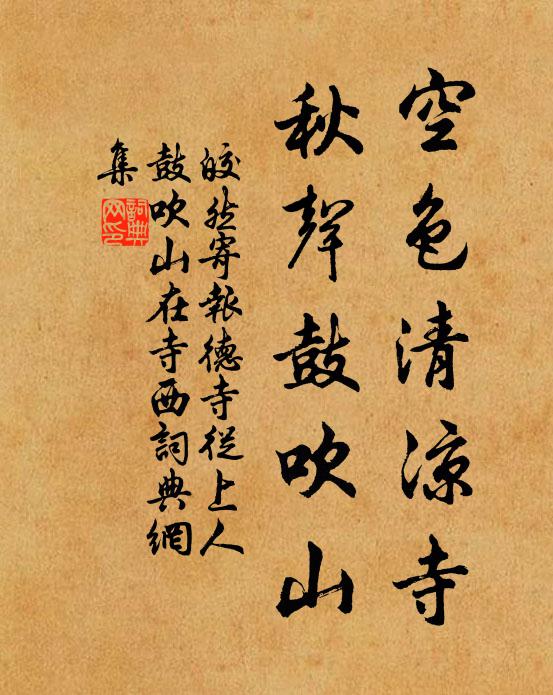 空色清涼寺
秋聲鼓吹山
皎然寄報德寺從上人
鼓吹山在寺西詞典網
集
詞典
网印